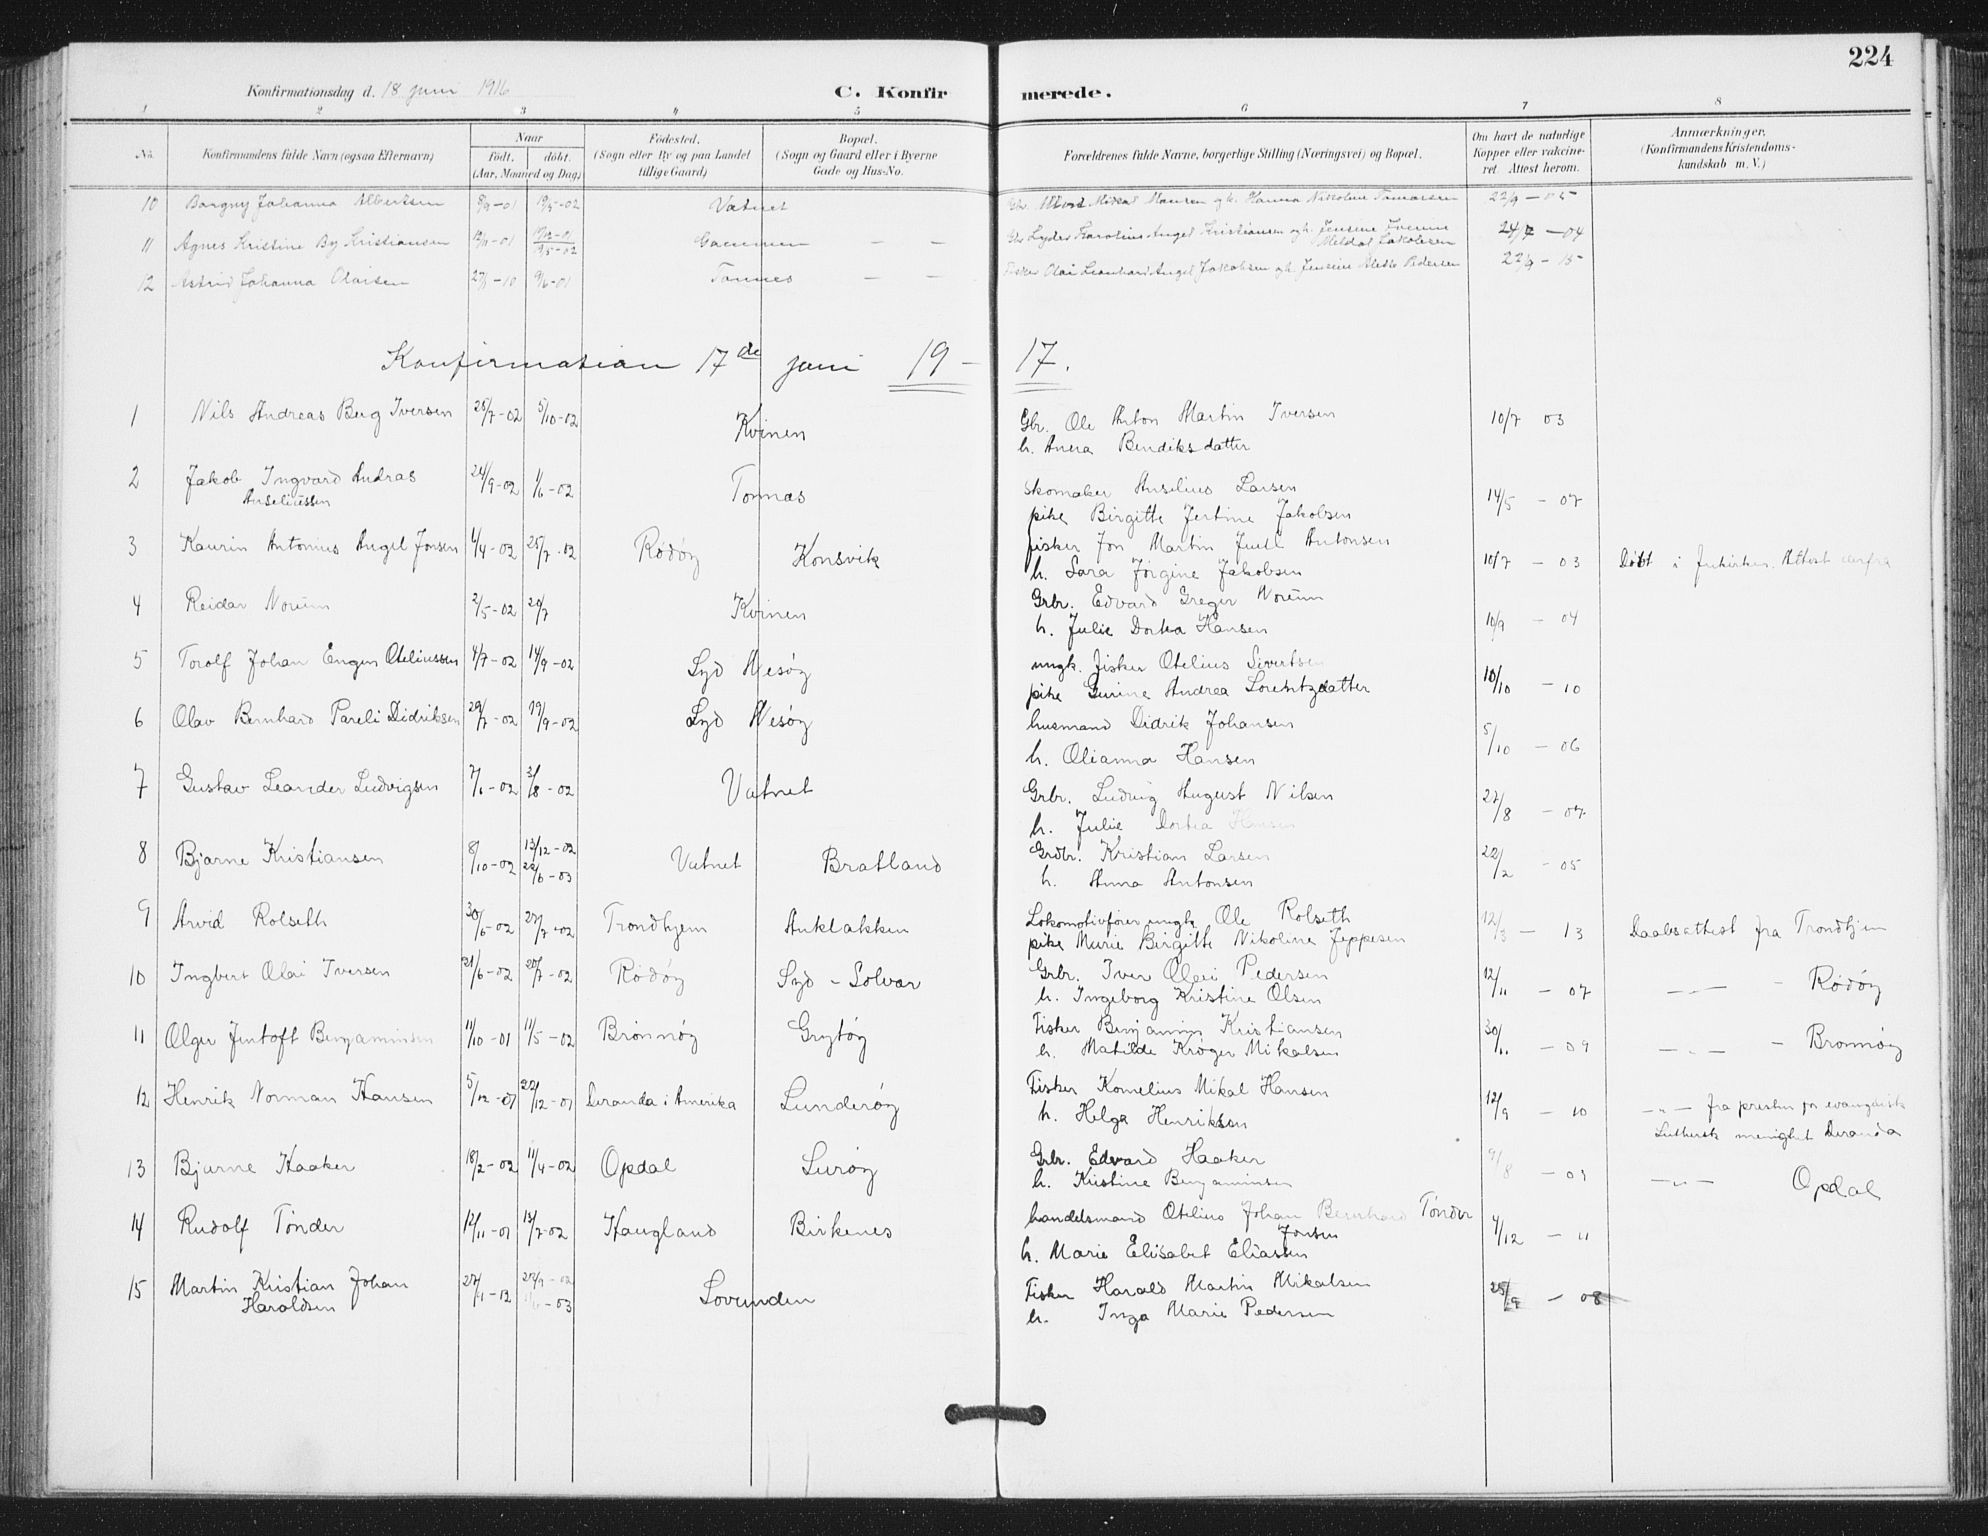 224
Konfirmationsdag d. 18 juni 1916
C. Konfirmerede.
1 2 3 4 5 6 7 8
No. Konfirmandens fulde Navn (ogsaa Efternavn) Naar født. døbt. (Aar, Maaned og Dag) Fødested. (Sogn eller By og paa Landet tillige Gaard) Bopæl. (Sogn og Gaard eller i Byerne Gade og Hus-No. Forældrenes fulde Navne, borgerlige Stilling (Næringsvei) og Bopæl. Om havt de naturlige Kopper eller vaccineret. Attest herom. Anmærkninger. (Konfirmandens Kristendomskundskab m. V.)
10 Borgny Johanna Albertsen 8/9-01 19/5-02 Vatnet Hansen og h. Hanna Nikoline 22/9-05
11 Agnes Kristine By Kristiansen Gammen — — Lyder Karolius Angel Kristiansen og h. Jensine 24/7-04
Meldal Jakobsen
12 Astrid Johanna Olaisen 27/3-10 9/6-01 Tonnes — — Fisker Olai Leonhard Angel Jakobsen og h. Jensine Mette Pedersen 22/9-15
Konfirmation 17de juni 19-17.
1 Nils Andreas Berg Iversen 25/7-02 5/10-02 Kvinen Gbr. Ole Anton Martin Iversen 10/7 03
h. Anna Bendiksdatter
2 Jakob Ingvard Andras 24/9-02 1/6-02 Tonnas Skomaker Anselius Larsen 14/5-07
Anseliussen pike Birgitte Jertine Jakobsen
3 Kaurin Antonius Angel Jonsen 4/4-02 25/7-02 Rødøy Konsvik fisker Jon Martin Juul Antonsen 10/7-03 Døbt i Attest derfra
h. Sara Jørgine Jakobsen
4 Reidar Norum 2/5-02 20/7 Kvinen Grbr. Edvard Greger Norum 10/9-04
h. Julie Dortea Hansen
5 Torolf Johan Engen Oteliussen 4/7-02 14/9-02 Syd Nesøy ungk. fisker Otelius Sivertsen 10/10-10
pike Gurine Andrea Lorentzdatter
6 Olav Bernhard Pareli Didriksen 29/7-02 19/9-02 Syd Nesøy husmand Didrik Johansen 5/10-06
h. Olianna Hansen
7 Gustav Leander Ludvigsen 7/6-02 3/8-02 Vatnet Grbr. Ludvig August Nilsen 27/8-07
h. Julie Dortea Hansen
8 Bjarne Kristiansen 8/10-02 13/12-02 Vatnet Bratland Grdbr. Kristian Larsen 22/2-05
22/6-03 h. Anna Antonsen
9 Arvid Rolseth 30/5-02 27/7-02 Trondhjem Auklakken Lokomotivfører ungk. Ole Rolseth 12/3-13 Daabsattest fra Trondhjem
pike Marie Birgitte Nikoline Jeppesen
10 Ingbert Olai Iversen 21/6-02 20/7-02 Rødøy Syd-Solvar Grbr. Iver Olai Pedersen 12/11-07 —"— - Rødøy
h. Ingeborg Kristine Olsen
11 Olger Jentoft Benjaminsen 11/10-01 11/5-02 Brønnøy Grytøy Fisker Benjamin Kristiansen 30/11-09 —"— - Brønnøy
h. Mathilde Krøger Mikalsen
12 Henrik Norman Hansen 5/12-01 22/12-01 Deranda i Amerika Lunderøy Fisker Kornelius Mikal Hansen 12/9-10 —"— fra presten for evangelisk
h. Helga Henriksen Luthersk menighet Deranda
13 Bjarne Haaker 18/2-02 11/4-02 Opdal Lurøy Grbr. Edvard Haaker 9/8-03 —"— Opdal
h. Kristine Benjaminsen
14 Rudolf Tønder 12/11-01 13/7-02 Haugland Birkenes handelsmand Otelius Johan Bernhard Tønder 4/12-11
Jonsen
h. Marie Elisabet Eliassen
15 Martin Kristian Johan Lovunden Fisker Harald Martin Mikalsen 25/9-08
Haraldsen h. Inga Marie Pedersen